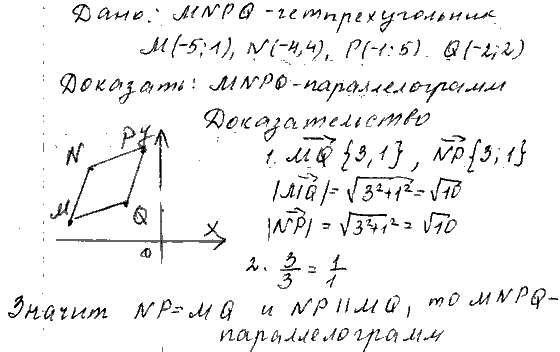 Дано: MNPQ - четырехугольник
M(-5;1), N(-4,4), P(-1;5) Q(-2;2)
Доказать: MNPQ-параллелограмм
Доказательство
1. MQ {3,1}, NP{3;1}
|MQ|= √3²+1² = √10
|NP|= √3²+1² = √10
2. 3/3 = 1/1
N P y
M Q
0 x
Значит NP=MQ и NP||MQ, то MNPQ-
параллелограмм